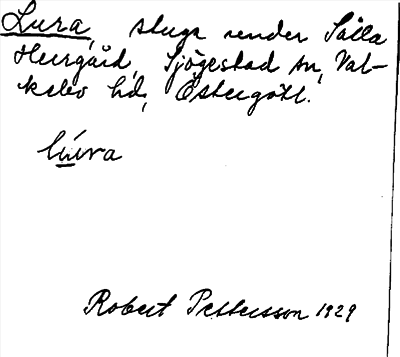 Lura, stuga under Sålla
Herrgård, Sjögestad sn, Val-
kebo hd, Östergötl.
lúra
Robert Pettersson 1929